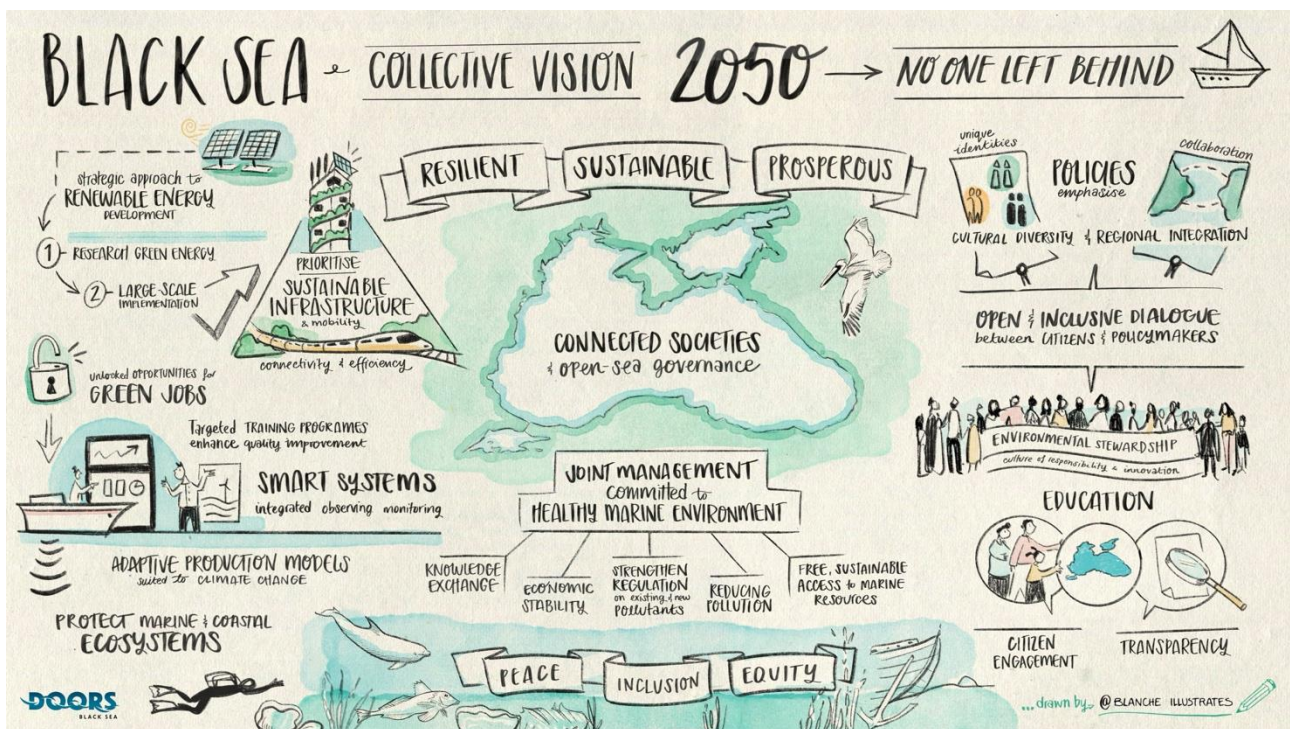 BLACK SEA COLLECTIVE VISION 2050 → NO ONE LEFT BEHIND
strategic approach to
RENEWABLE ENERGY
DEVELOPMENT
1 - RESEARCH GREEN ENERGY
2 - LARGE-SCALE
IMPLEMENTATION
PRIORITISE
SUSTAINABLE
INFRASTRUCTURE
& mobility
connectivity & efficiency
unlocked OPPORTUNITIES for
GREEN JOBS
Targeted TRAINING PROGRAMES
enhance quality improvement
SMART SYSTEMS
integrated observing monitoring
ADAPTIVE PRODUCTION MODELS
suited to CLIMATE CHANGE
PROTECT MARINE & COASTAL
ECOSYSTEMS
DOORS
BLACK SEA
RESILIENT
SUSTAINABLE
PROSPEROUS
CONNECTED SOCIETIES
& open-sea governance
JOINT MANAGEMENT
committed to
HEALTHY MARINE ENVIRONMENT
KNOWLEDGE
EXCHANGE
ECONOMIC
STABILITY
STRENGTHEN
REGULATION
on existing & new
Pollutants
REDUCING
POLLUTION
FREE, SUSTAINABLE
ACCESS to MARINE
Resources
PEACE
INCLUSION
EQUITY
unique
identities
POLICIES
emphasise
collaboration
CULTURAL DIVERSITY & REGIONAL INTEGRATION
OPEN & INCLUSIVE DIALOGUE
between CITIZENS & POLICYMAKERS
ENVIRONMENTAL STEWARDSHIP
culture of responsibility & innovation
EDUCATION
CITIZEN
ENGAGEMENT
TRANSPARENCY
...drawn by @BLANCHE ILLUSTRATES